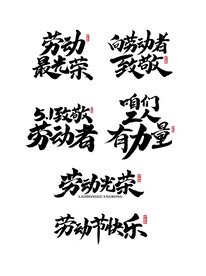 劳动
最光荣
向劳动者
致敬
5.1致敬
劳动者
咱们
工人
有力量
劳动光荣
LAODONGGUANGRONG
劳动节快乐